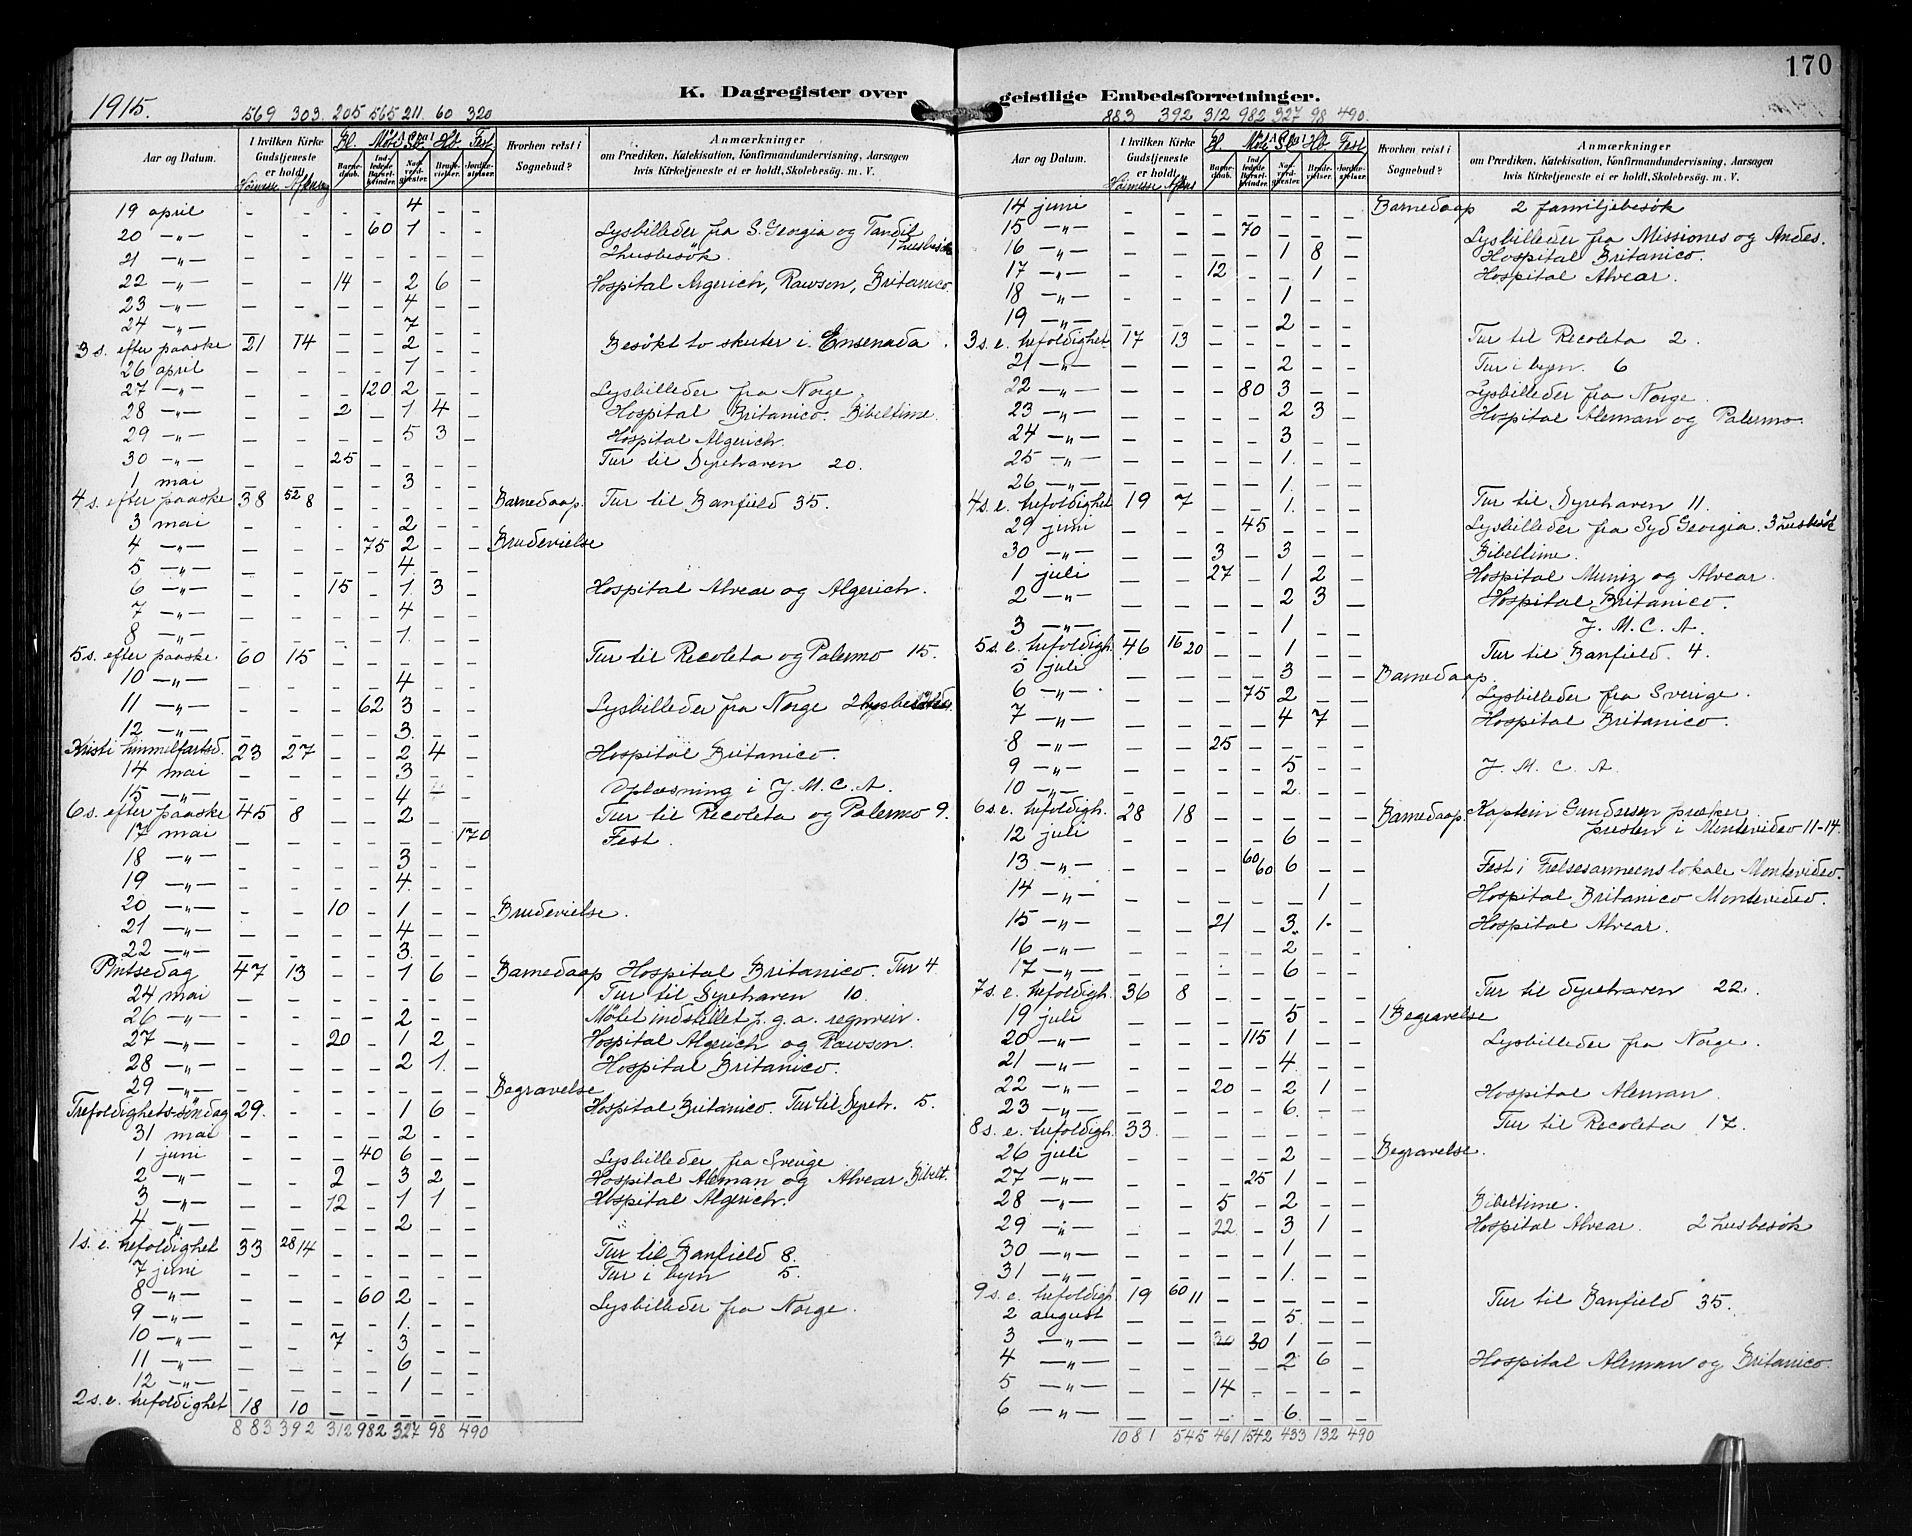 170
1915.
K. Dagregister over geistlige Embedsforretninger.
569 303. 205 565 211 60 320
Aar og Datum.
I hvilken Kirke Gudstjeneste er holdt.
Høimesse Aftensg
Bl. Møt. S.b. H.b. Fest
Barnedaab. Indledede Barselkvinder. Nadverdgjester. Brudevielser. Jordfæstelser.
Hvorhen reist i Sognebud?
Anmærkninger
om Prædiken, Katekisation, Konfirmandundervisning, Aarsagen
hvis Kirketjeneste ei er holdt, Skolebesøg. m. V.
19 april – – – – 4 – –
20 –„– – – – 60 1 – – Lysbilleder fra S. Georgia og Tandil 1 husbesök
21 –„– – – – – – – – 2 husbesök.
22 –„– – – 14 – 2 6 – Hospital Argerich, Rawson, Britanico.
23 –„– – – – – 4 – –
24 –„– – – – – 7 – –
3 s. efter paaske 21 14 – – 2 – – Besökt to skuter i Ensenada.
26 april – – – – 1 – –
27 –„– – – – 120 2 – – Lysbilleder fra Norge.
28 –„– – – 2 – 1 4 – Hospital Britanico. Bibeltime.
29 –„– – – – – 5 3 – Hospital Algerich.
30 –„– – – 25 – – – – Tur til Dyrehaven 20.
1 mai – – – – 3 – –
4 s. efter paaske 38 52 8 – – – – – Barnedaap. Tur til Banfield 35.
3 mai – – – – 2 – –
4 –„– – – – 75 2 – – Brudevielse
5 –„– – – – – 4 – –
6 –„– – – 15 – 1 3 – Hospital Alvear og Algerich.
7 –„– – – – – 4 – –
8 –„– – – – – 1 – –
5 s. efter paaske. 60 15 – – – – – Tur til Recoleta og Palermo 15.
10 –„– – – – – 4 – –
11 –„– – – – 62 3 – – Lysbilleder fra Norge 2
12 –„– – – – – 3. – –
Kristi himmelfartsd. 23 27 – – 2 4 – Hospital Britanico.
14 mai – – – – 3 – –
15 –„– – – – – 4 – – Oplæsning i Y. M. C. A.
6 s. efter paaske 45 8 – – 2 – – Tur til Recoleta og Palermo 9.
17 mai – – – – – – 170 Fest.
18 –„– – – – – 3 – –
19 –„– – – – – 4. – –
20 –„– – – 10 – 1 – – Brudevielse.
21 –„– – – – – 4 – –
22 –„– – – – – 3. – –
Pintsedag 47 13 – – 1 6 – Barnedaap Hospital Britanico. Tur 4.
24 mai – – – – – – – Tur til Dyrehaven 10.
26 –„– – – – – 2 – – Mötet indstillet p. g. a. regnveir.
27 –„– – – 20 – 1 2 – Hospital Algerich og Rawson.
28 –„– – – – – 2 1. – Hospital Britanico.
29 –„– – – – – – – – Begravelse
Trefoldighets-söndag 29. – – – 1 6 – Hospital Britanico. Tur til Dyreh. 5.
31 mai – – – – 2 – –
1 juni – – – 40 6 – – Lysbilleder fra Sverige
2 –„– – – 2 – 3 2 – Hospital Aleman og Alvear Bibelt.
3 –„– – – 12 – 1 1 – Hospital Algerich.
4 –„– – – – – 2 – –
1 s. e. trefoldighet 33 28 14 – – – – – Tur til Banfield 8.
7 juni – – – – – – – Tur i byen 5.
8 –„– – – – 60 2 – – Lysbilleder fra Norge.
9 –„– – – – – 1. – –
10 –„– – – 7 – 3 – –
11 –„– – – – – 6 – –
12 –„– – – – – 1 – –
2 s. e. trefoldighet 18 10 – – – – –
883 392 312 982 327 98 490
883 392 312 982 327 98 490.
Aar og Datum.
I hvilken Kirke Gudstjeneste er holdt.
Høimesse Aftens
Bl. Møt. S.b. H.b. Fest
Barnedaab. Indledede Barselkvinder. Nadverdgjester. Brudevielser. Jordfæstelser.
Hvorhen reist i Sognebud?
Anmærkninger
om Prædiken, Katekisation, Konfirmandundervisning, Aarsagen
hvis Kirketjeneste ei er holdt, Skolebesøg. m. V.
14 juni – – – – – – – Barnedaap 2 familjebesök
15 –„– – – – 70 – – – Lysbilleder fra Missiones og Andes.
16 –„– – – – – 1 8 – Hospital Britanico.
17 –„– – – 12 – – 1 – Hospital Alvear.
18 –„– – – – – 1 – –
19 –„– – – – – 2 – –
3 s. e. trefoldighet 17 13 – – – – – Tur til Recoleta 2.
21 –„– – – – – 2 – – Tur i byen. 6
22 –„– – – – 80 3 – – Lysbilleder fra Norge.
23 –„– – – – – 2 3 – Hospital Aleman og Palermo.
24 –„– – – – – 3 – –
25 –„– – – – – 1. – –
26 –„– – – – – 1. – –
4 s. e. trefoldighet 19 7 – – 1. – – Tur til Dyrehaven 11.
29 juni – – – 45 – – – Lysbilleder fra Syd Georgia. 3 husbesök
30 –„– – – 3 – 3 – – Bibeltime.
1 juli – – 27 – 1 2 – Hospital Muniz og Alvear.
2 –„– – – – – 2 3 – Hospital Britanico.
3 –„– – – – – 1 – – Y. M. C. A.
5 s. e. trefoldigh. 46 16 20 – – 1 – – Tur til Banfield. 4.
5 juli – – – – 3 – – Barnedaap.
6 –„– – – – 75 2 – – Lysbilleder fra Sverige.
7 –„– – – – – 4 7 – Hospital Britanico.
8 –„– – – 25 – – – –
9 –„– – – – – 5 – – Y. M. C. A.
10 –„– – – – – 2. – –
6 s. e. trefoldigh. 28 18 – – – – – Barnedaap. Kaptein Gundersen præker
12 juli – – – – 6 – – presten i Montevideo 11–14.
13 –„– – – – 60 60 6 – – Fest i Frelsesarmeens lokale Montevideo.
14 –„– – – – – – 1 – Hospital Britanico Montevideo.
15 –„– – – 21 – 3 1 – Hospital Alvear.
16 –„– – – – – 2 – –
17 –„– – – – – 6 – –
7 s. e. trefoldigh. 36 8 – – – – – Tur til Dyrehaven 22.
19 juli – – – – 5 – – 1 Begravelse
20 –„– – – – 115 1 – – Lysbilleder fra Norge.
21 –„– – – – – 4 – –
22 –„– – – 20 – 2 1 – Hospital Aleman.
23 –„– – – – – 6. – –
8 s. e. trefoldigh. 33. – – – – – – Tur til Recoleta 17.
26 juli – – – – 2 – – Begravelse.
27 –„– – – – 25 1 – –
28 –„– – – 5 – 2 – – Bibeltime.
29 –„– – – 22 – 3 1 – Hospital Alvear. 2 husbesök
30 –„– – – – – 1 – –
31 –„– – – – – 1. – –
9 s. e. trefoldigh. 19 60 11 – – – – – Tur til Banfield 35.
2 august – – – – 5. – –
3 –„– – – 30 30 1 – –
4 –„– – – – – 2 6 – Hospital Aleman og Britanico.
5 –„– – – 14 – – – –
6 –„– – – – – 6 – –
1081 545 461 1542 433 132 490